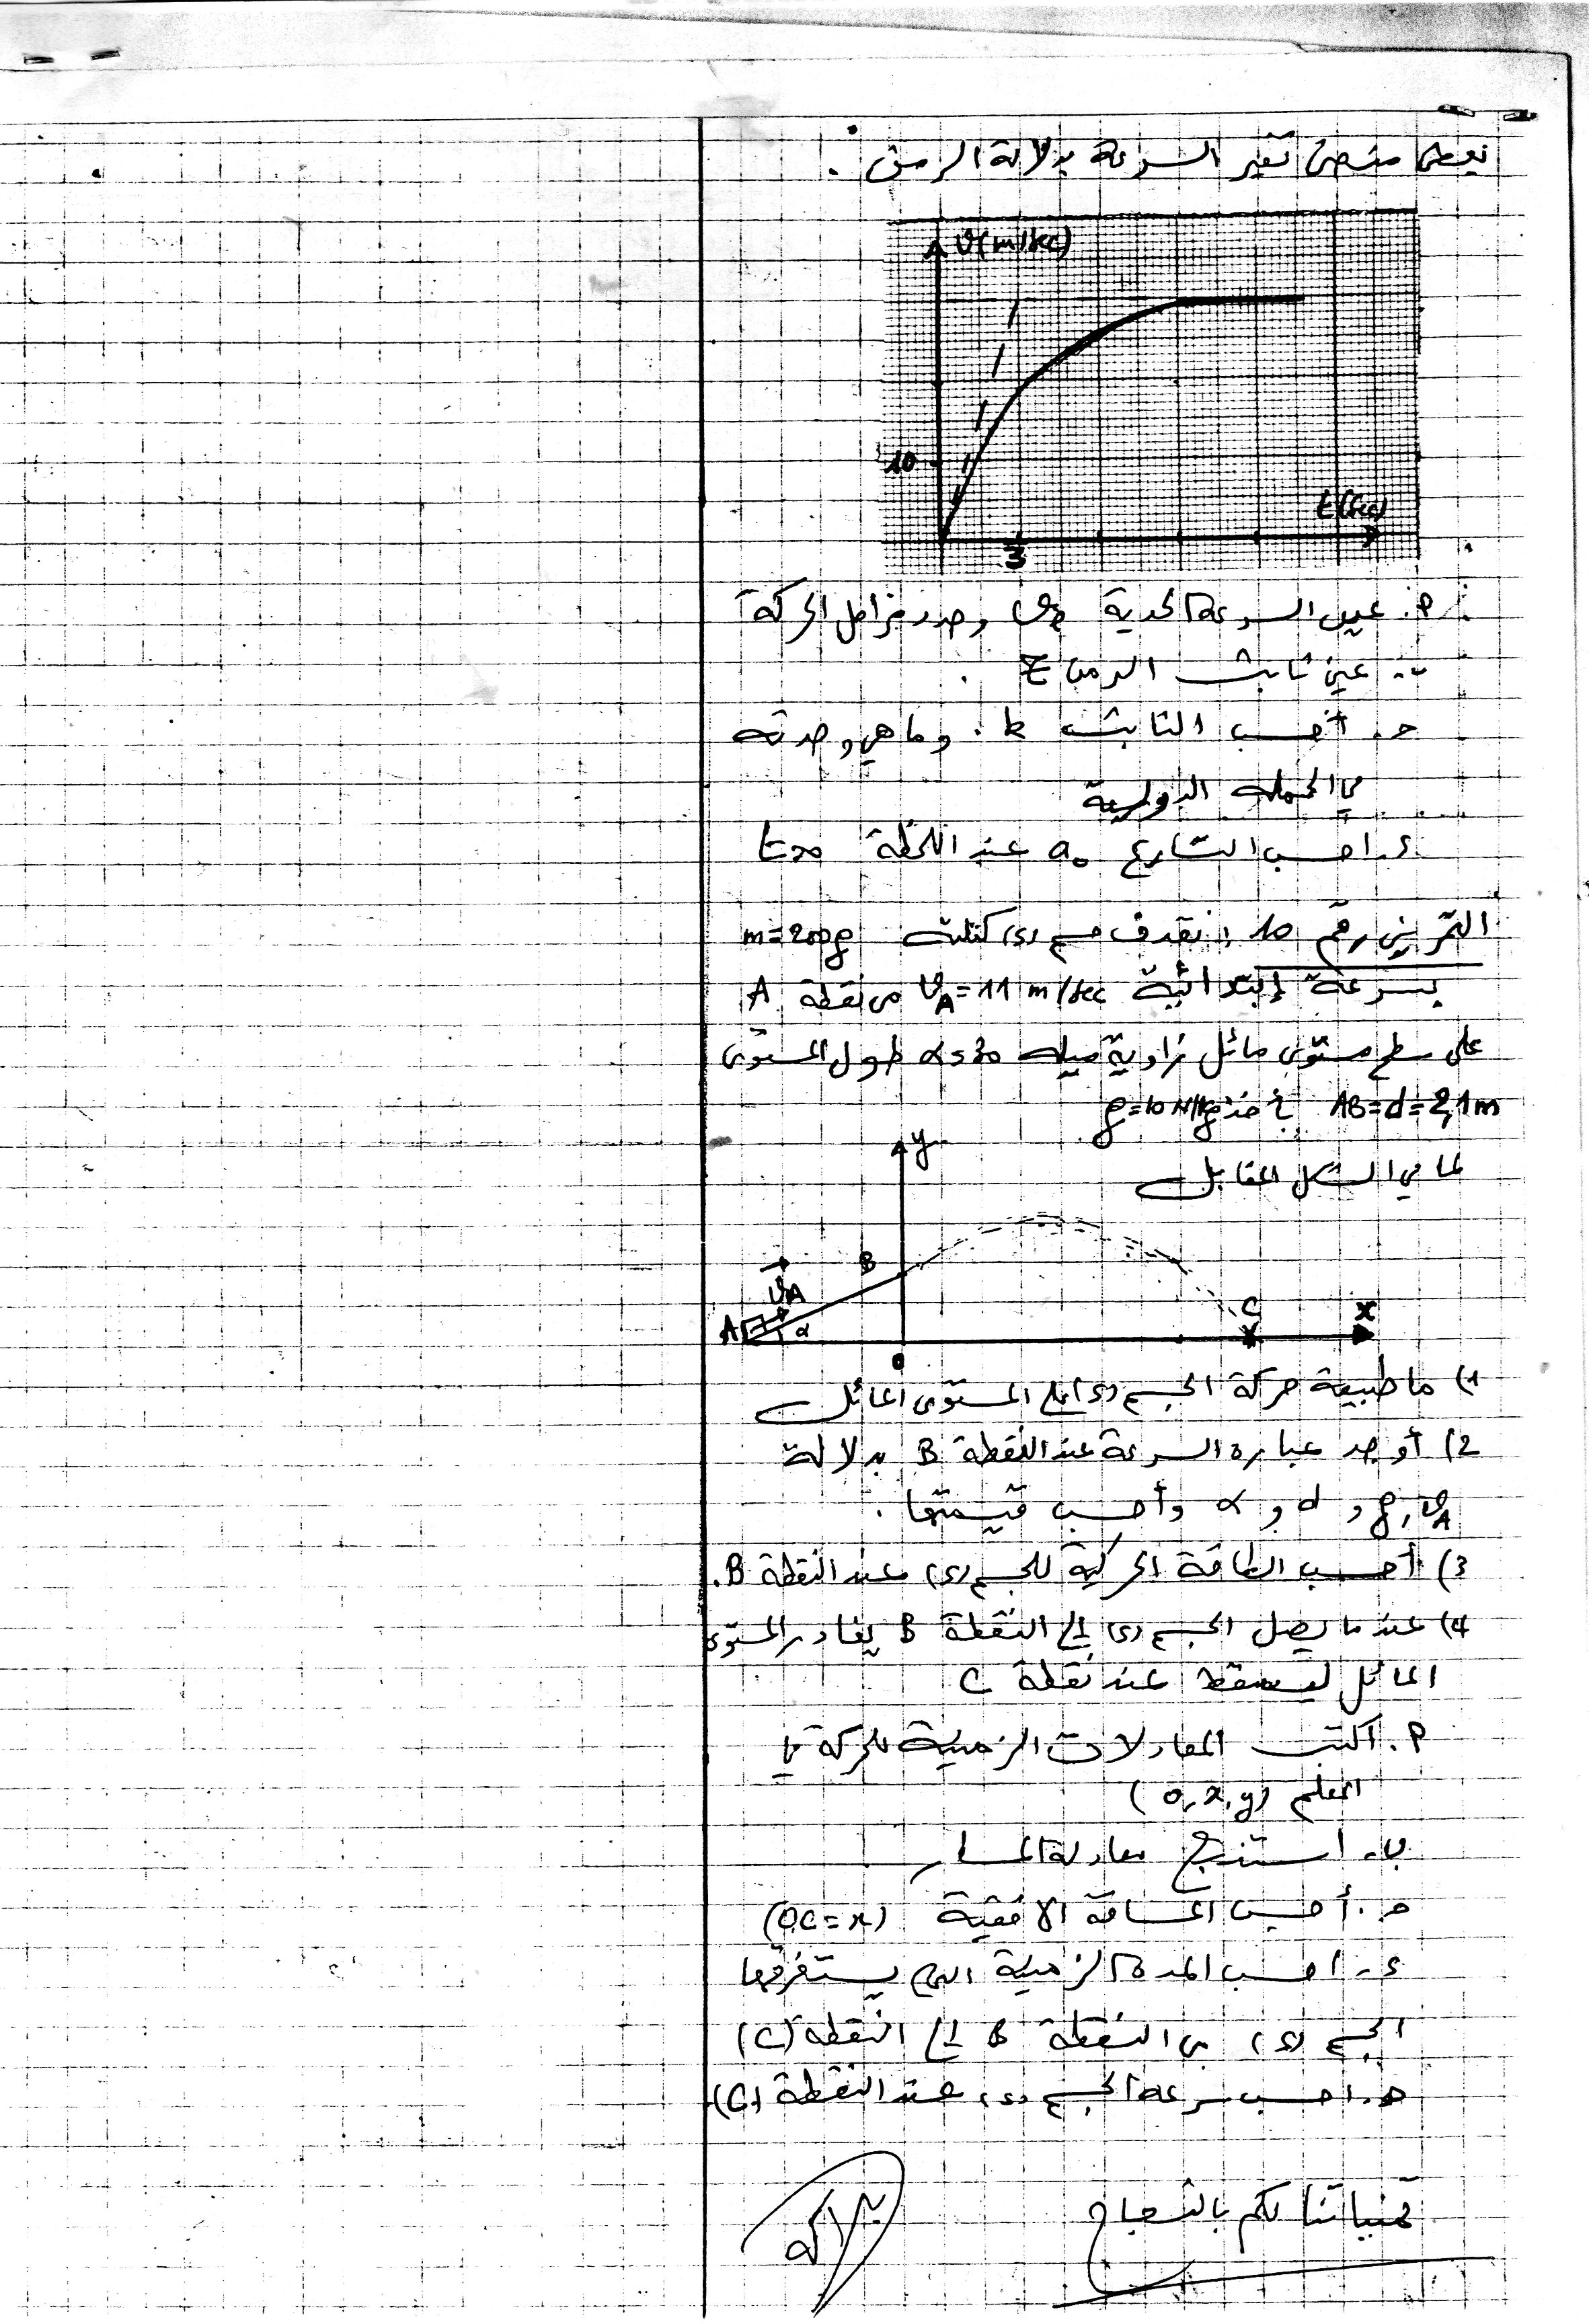 نعطي منحنى تغير السرعة بدلالة الزمن .
v(m/sec)
10
t(sec)
3
أ. عين السرعة الحدية وحدد مراحل الحركة
ب. عين ثابت الزمن τ .
ج. أحسب الثابت k . وما هي وحدته
في الجملة الدولية
د. احسب التسارع a₀ عند اللحظة t=0
التمرين رقم 10 : نقذف جسم (s) كتلته m=200g
بسرعة إبتدائية v_A=11 m/sec من نقطة A
على سطح مستوي مائل زاوية ميله α=30 طول المستوى
AB=d=2,1m نأخذ g=10N/kg
كما في الشكل المقابل
y
B
v_A
A
α
C
x
0
1) ما طبيعة حركة الجسم (s) على المستوى المائل
2) أوجد عبارة السرعة عند النقطة B بدلالة
v_A , g و d و α وأحسب قيمتها .
3) أحسب الطاقة الحركية للجسم (s) عند النقطة B.
4) عندما يصل الجسم (s) إلى النقطة B يغادر المستوى
المائل ليسقط عند نقطة C
أ. اكتب المعادلات الزمنية للحركة في
المعلم (o,x,y)
ب. استنتج معادلة المسار
ج. أحسب المسافة الافقية (OC=x)
د. احسب المدة الزمنية التي يستغرقها
الجسم (s) من النقطة B إلى النقطة (C)
ه. احسب سرعة الجسم (s) عند النقطة (C)
تمنياتنا لكم بالنجاح